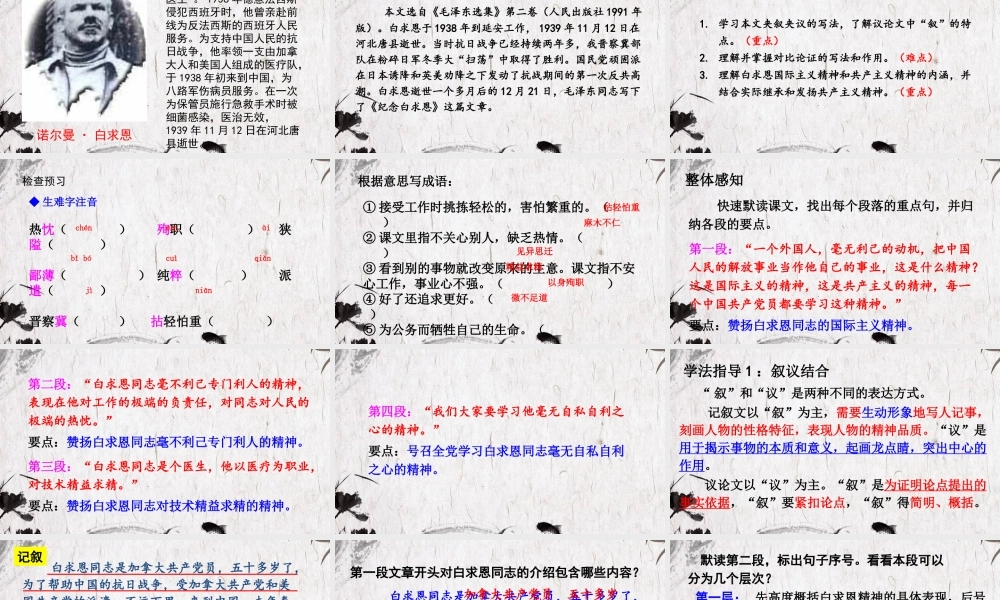 侵犯西班牙时，他曾亲赴前
线为反法西斯的西班牙人民
服务。为支持中国人民的抗
日战争，他率领一支由加拿
大人和美国人组成的医疗队，
于 1938 年初来到中国，为
八路军伤病员服务。在一次
为保管员施行急救手术时被
细菌感染，医治无效，
1939 年 11 月 12 日在河北唐
县逝世。
诺尔曼 · 白求恩
本文选自《毛泽东选集》第二卷（人民出版社 1991 年
版）。白求恩于 1938 年到延安工作， 1939 年 11 月 12 日在
河北唐县逝世。当时抗日战争已经持续两年多，我晋察冀部
队在粉碎日军冬季大“扫荡”中取得了胜利。国民党顽固派
在日本诱降和英美劝降之下发动了抗战期间的第一次反共高
潮。白求恩逝世一个多月后的 12 月 21 日，毛泽东同志写下
了《纪念白求恩》这篇文章。
1. 学习本文夹叙夹议的写法，了解议论文中“叙”的特
点。（重点）
2. 理解并掌握对比论证的写法和作用。（难点）
3. 理解白求恩国际主义精神和共产主义精神的内涵，并
结合实际继承和发扬共产主义精神。（重点）
检查预习
◆ 生难字注音
热忱（ chén ） 殉职（ ） ài 狭
隘（ ）
bǐ bó cuì qiǎn
鄙薄（ ） 纯粹（ ） 派
遣（ jì ） niān
晋察冀（ ） 拈轻怕重（ ）
根据意思写成语：
① 接受工作时挑拣轻松的，害怕繁重的。（拈轻怕重
） 麻木不仁
② 课文里指不关心别人，缺乏热情。（
） 见异思迁
③ 看到别的事物就改变原来的主意。课文指不安
心工作，事业心不强。（ 以身殉职 ）
④ 好了还追求更好。（ 微不足道
）
⑤ 为公务而牺牲自己的生命。（
整体感知
快速默读课文，找出每个段落的重点句，并归
纳各段的要点。
第一段：“一个外国人，毫无利己的动机，把中国
人民的解放事业当作他自己的事业，这是什么精神？
这是国际主义的精神，这是共产主义的精神，每一
个中国共产党员都要学习这种精神。”
要点：赞扬白求恩同志的国际主义精神。
第二段：“白求恩同志毫不利己专门利人的精神，
表现在他对工作的极端的负责任，对同志对人民的
极端的热忱。”
要点：赞扬白求恩同志毫不利己专门利人的精神。
第三段：“白求恩同志是个医生，他以医疗为职业，
对技术精益求精。”
要点：赞扬白求恩同志对技术精益求精的精神。
第四段：“我们大家要学习他毫无自私自利之
心的精神。”
要点：号召全党学习白求恩同志毫无自私自利
之心的精神。
学法指导 1 ：叙议结合
“叙”和“议”是两种不同的表达方式。
记叙文以“叙”为主，需要生动形象地写人记事，
刻画人物的性格特征，表现人物的精神品质。“议”是
用于揭示事物的本质和意义，起画龙点睛，突出中心的
作用。
议论文以“议”为主。“叙”是为证明论点提出的
事实依据，“叙”要紧扣论点，“叙”得简明、概括。
记叙
白求恩同志是加拿大共产党员，五十多岁了，
为了帮助中国的抗日战争，受加拿大共产党和美
第一段文章开头对白求恩同志的介绍包含哪些内容？
白求恩同志是加拿大共产党员，五十多岁了，
默读第二段，标出句子序号。看看本段可以
分为几个层次？
第一层： 先高度概括白求恩精神的具体表现，后号